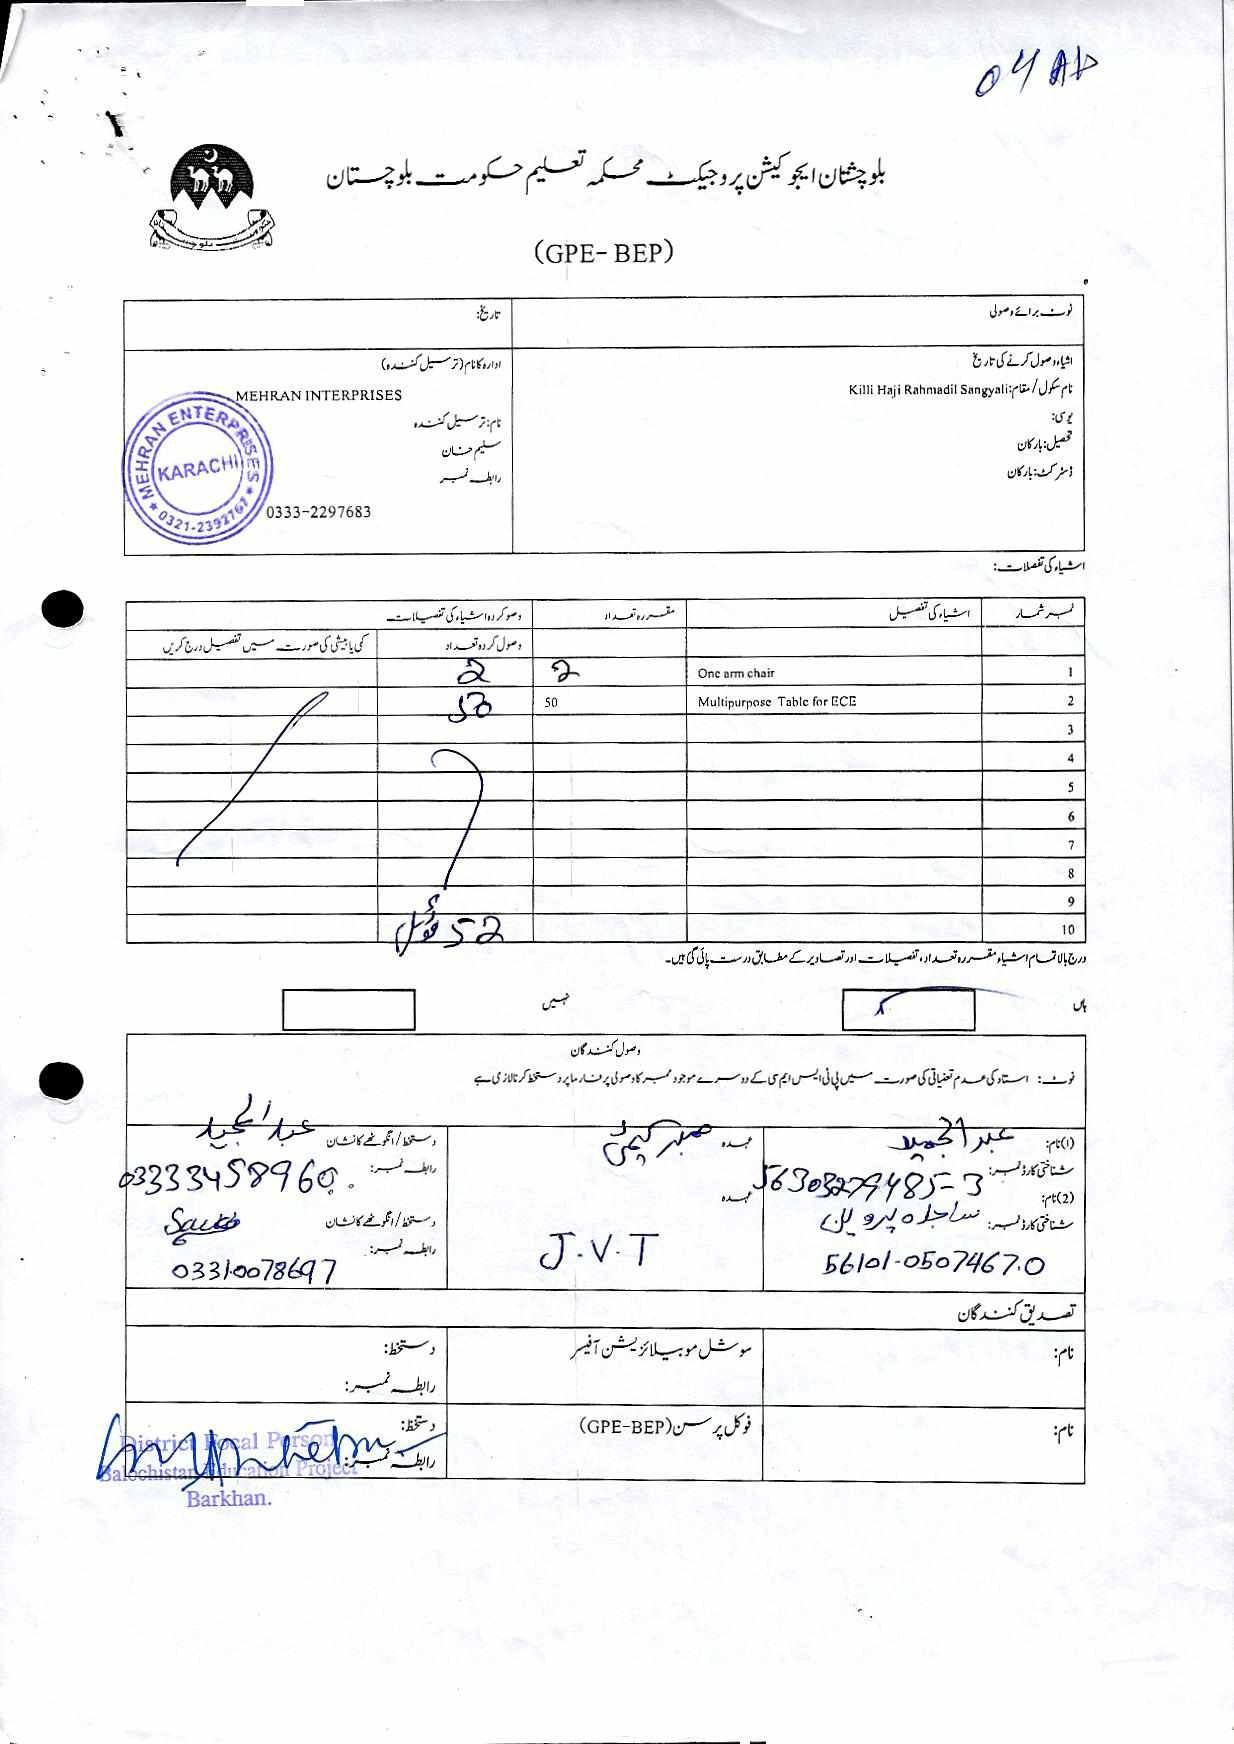 04 AD
بلوچستان ایجوکیشن پروجیکٹ محکمہ تعلیم حکومت بلوچستان
(GPE- BEP)
نوٹ برائے وصولی
تاریخ:
اشیاء وصول کرنے کی تاریخ
نام سکول/مقام:Killi Haji Rahmadil Sangyali
یوسی:
تحصیل:بارکان
ڈسٹرکٹ:بارکان
ادارہ کا نام (ترسیل کنندہ)
MEHRAN INTERPRISES
نام:ترسیل کنندہ
سلیم خان
رابطہ نمبر
0333-2297683
MEHRAN ENTERPRISES
KARACHI
0321-2392767
اشیاء کی تفصلات:
نمبر شمار اشیاء کی تفصیل مقررہ تعداد وصو کردہ اشیاء کی تفصیلات
وصول کردہ تعداد کمی یا بیشی کی صورت میں تفصیل درج کریں
1 One arm chair 2 2
2 Multipurpose Table for ECE 50 50
3
4
5
6
7
8
9
10 52 ٹوٹل
درج بالا تمام اشیاء مقررہ تعداد، تفصیلات اور تصاویر کے مطابق درست پائی گئی ہیں۔
ہاں نہیں
وصول کنندگان
نوٹ: استاد کی عدم تعیناتی کی صورت میں پی ٹی ایس ایم سی کے دوسرے موجود ممبر کا وصولی پر فارما پر دستخط کرنا لازمی ہے
(1)نام: عبدالحمید عہدہ ممبر کمیٹی دستخط/انگوٹھے کا نشان عبدالمجید
شناختی کارڈ نمبر: 56303279485-3 رابطہ نمبر: 03333458960
(2)نام: ساجدہ پروین عہدہ J.V.T دستخط/انگوٹھے کا نشان
شناختی کارڈ نمبر: 56101-0507467.0 رابطہ نمبر: 03310078697
تصدیق کنندگان
نام: سوشل موبیلائزیشن آفیسر دستخط:
رابطہ نمبر:
نام: فوکل پرسن (GPE-BEP) دستخط:
رابطہ نمبر:
District Focal Person
Balochistan Education Project
Barkhan.